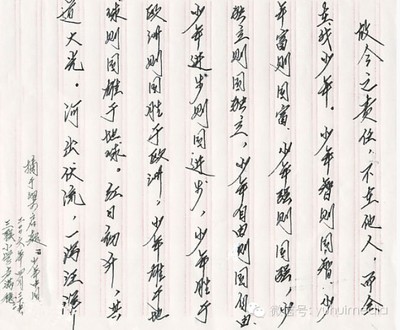 故今之责任，不在他人，而全
在我少年。少年智则国智，少
年富则国富，少年强则国强，少
独立则国独立，少年自由则国自由
少年进步则国进步，少年胜于
欧洲则国胜于欧洲，少年雄于地
球则国雄于地球。红日初升，其
道大光。河出伏流，一泻汪洋
摘于梁启超
年中国
年四月
小学
微信号: yuhuimedia